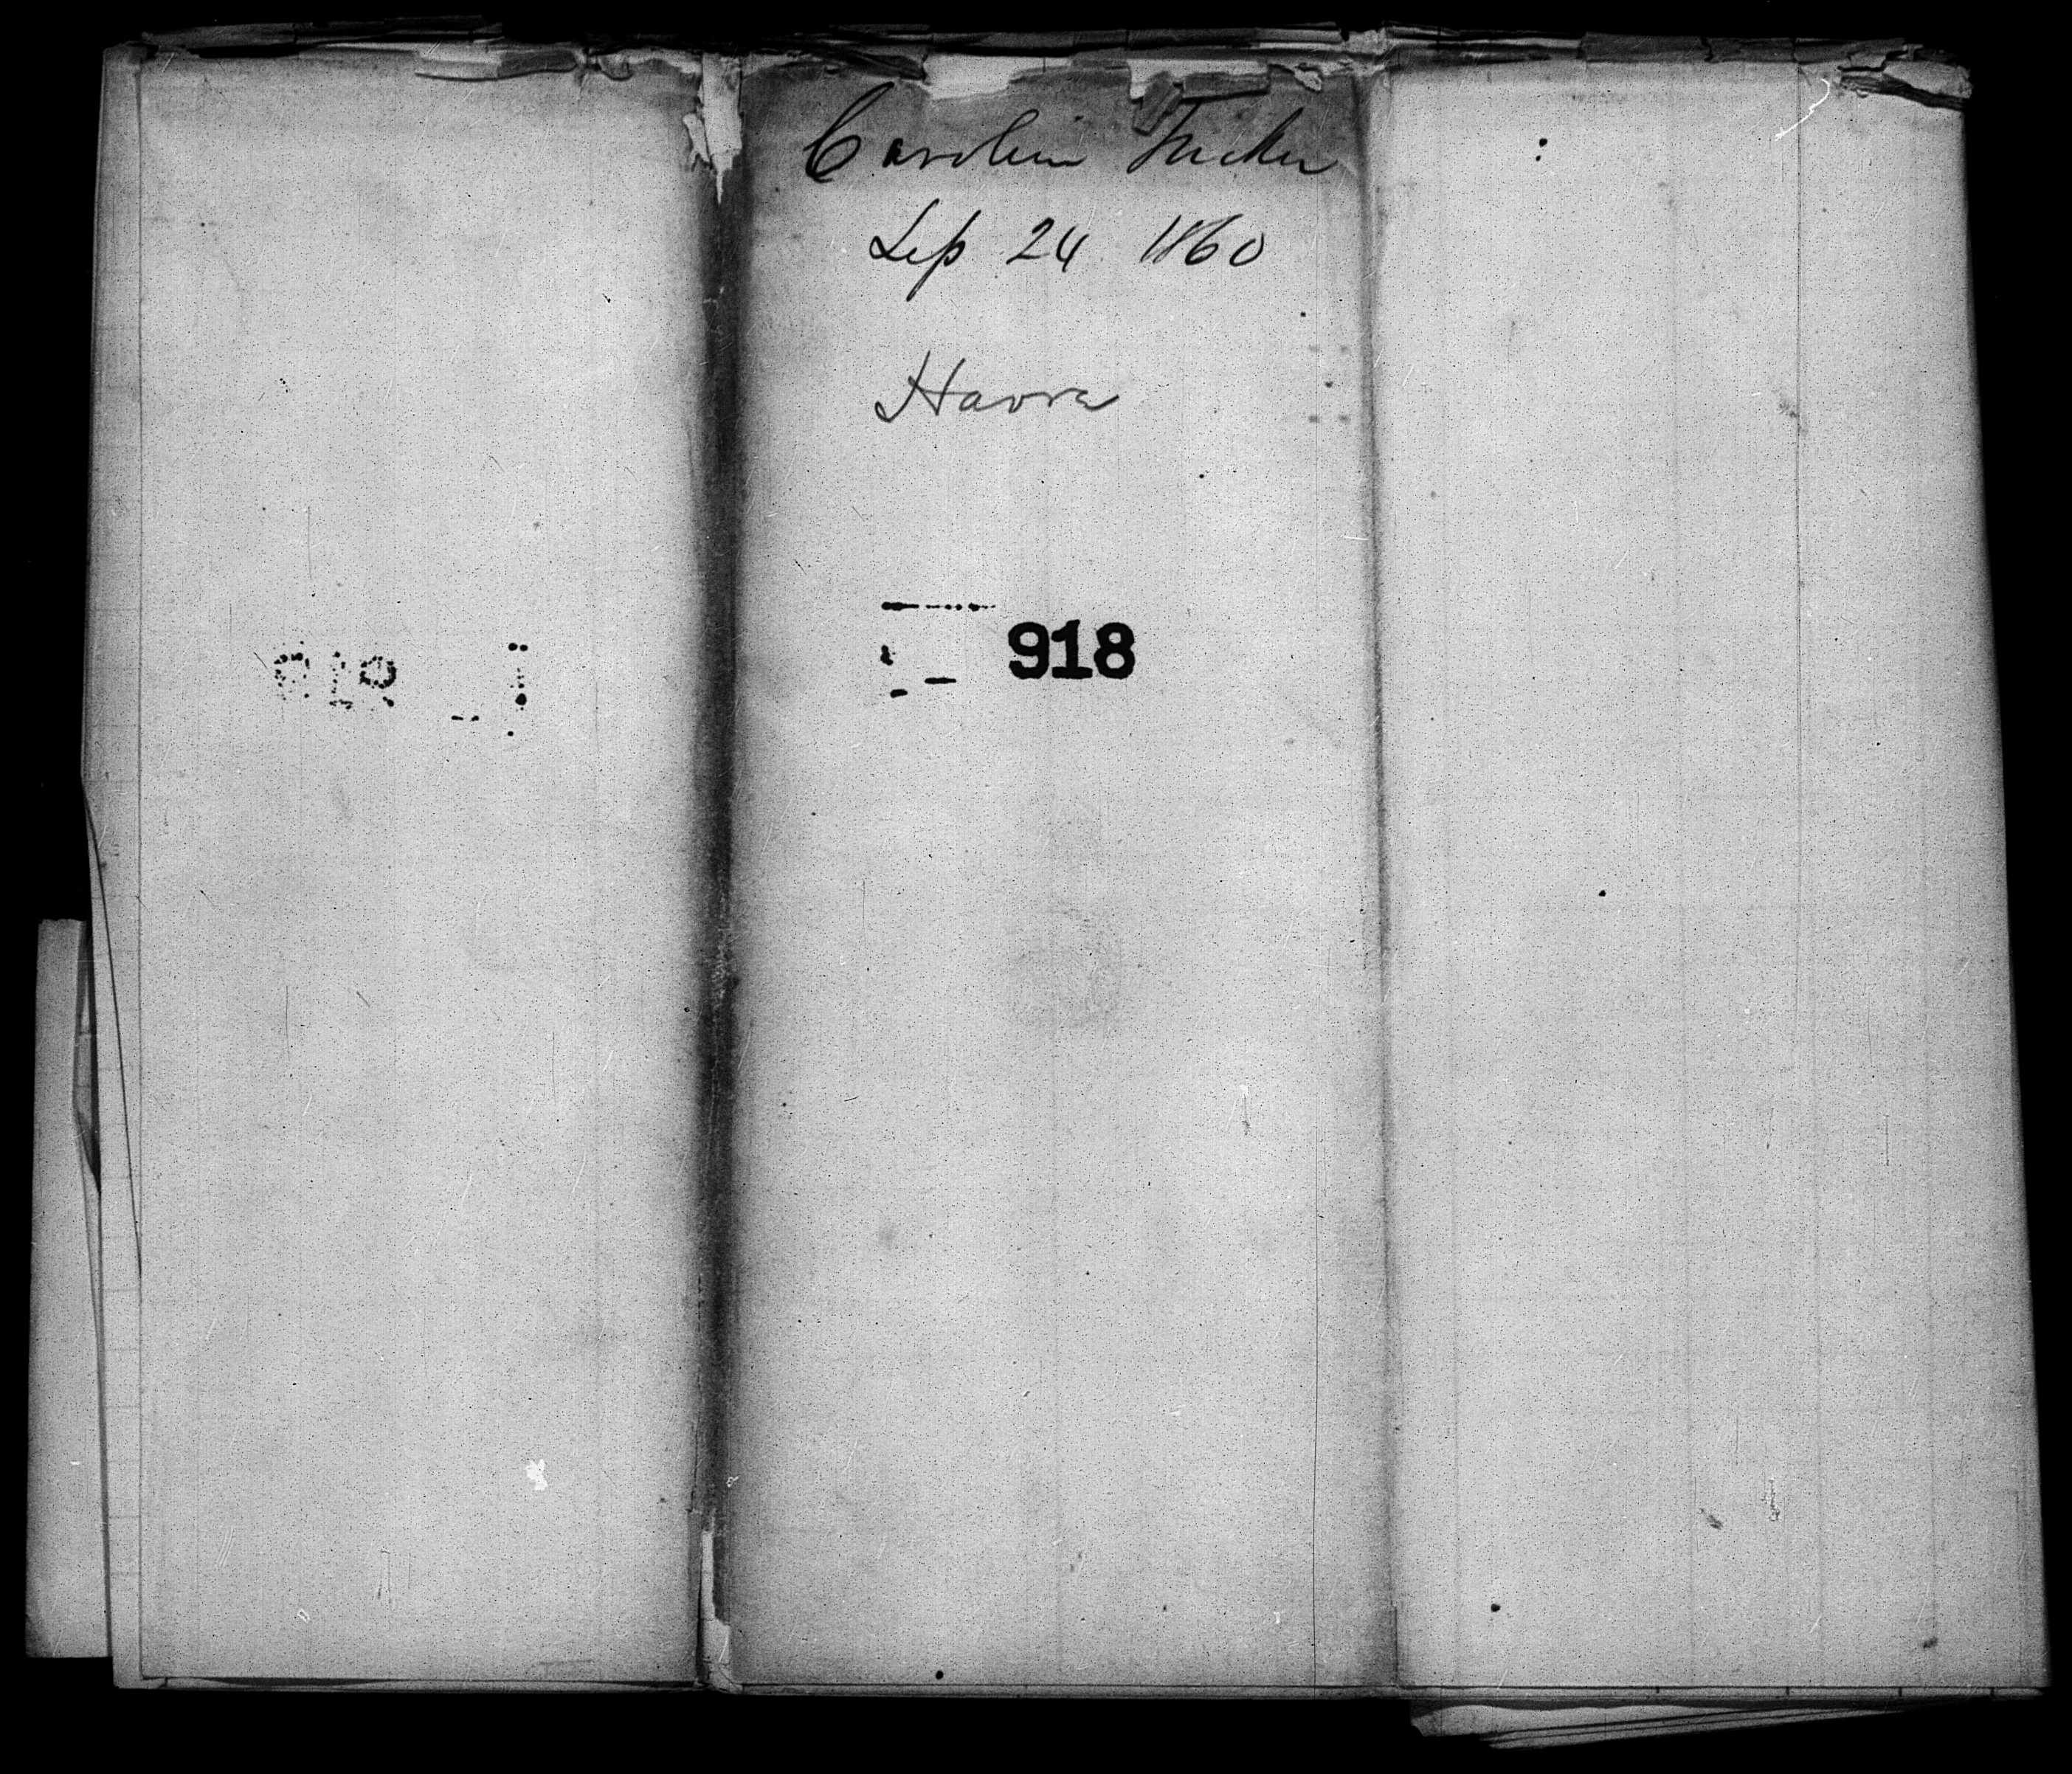 Caroline Tucker
Sep 24 1860
Havre
918